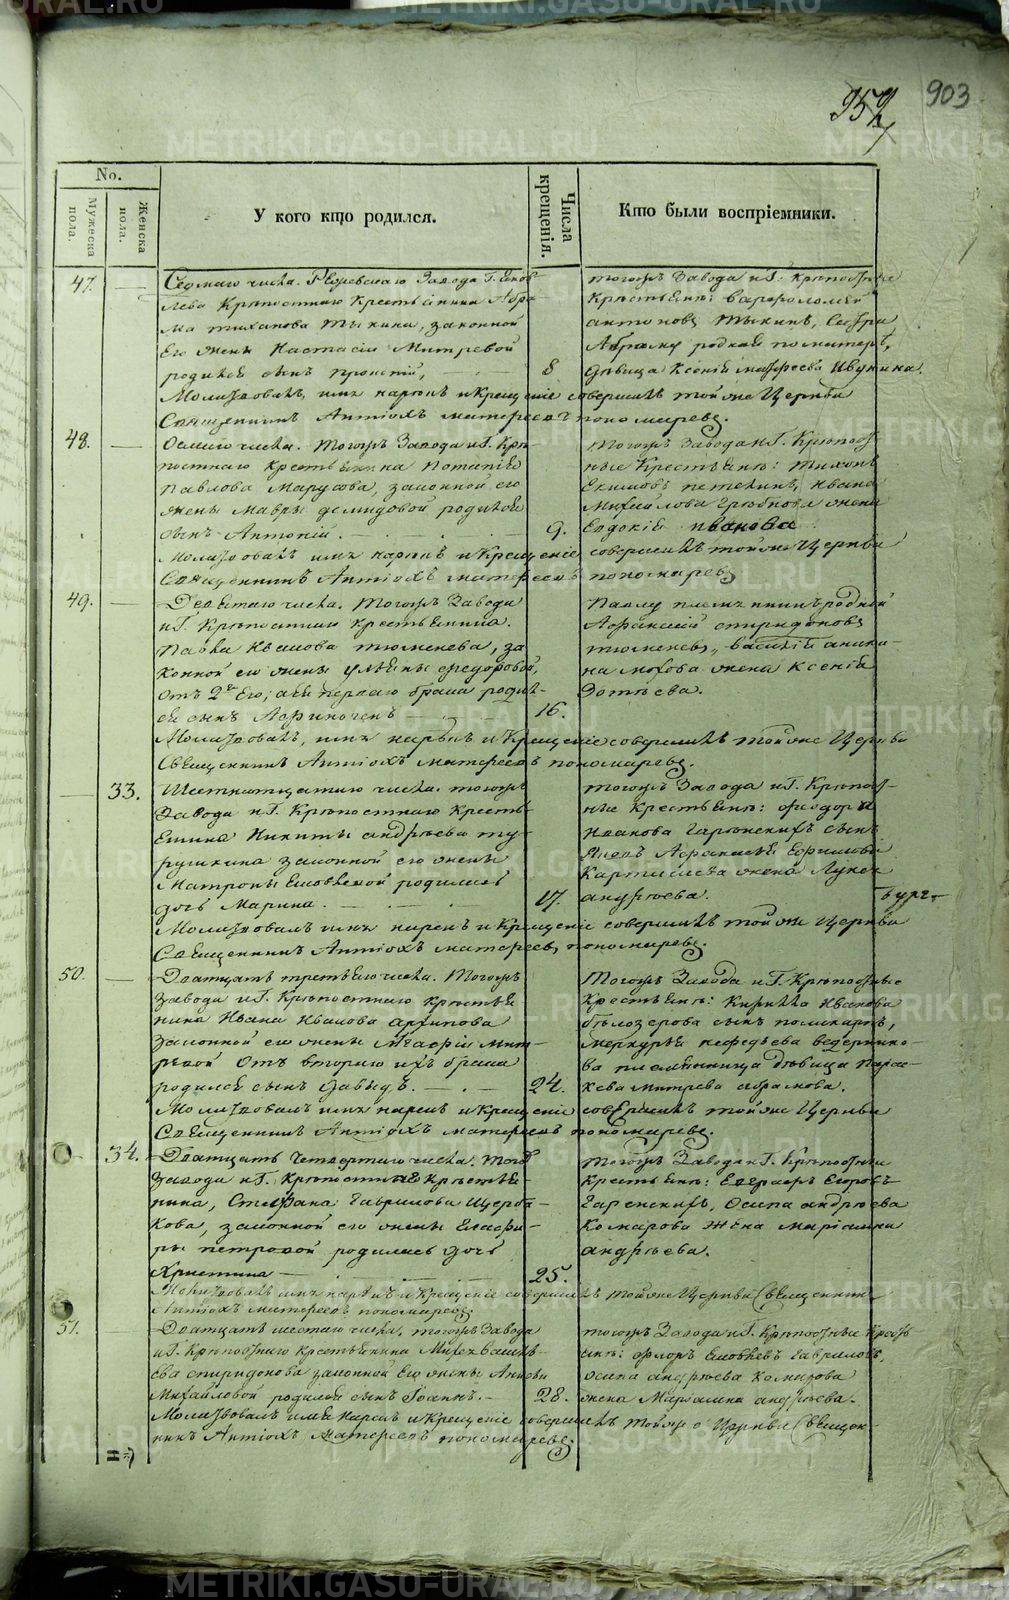 903
959
No.
Мужеска пола.
Женска пола.
У кого кто родился.
Числа крещенія.
Кто были воспріемники.
47.
Седмаго числа. Ревдинскаго Завода Г. Зенов-
Крѣпостнаго Крестьянина Абра-
ма Тихонова Тыкина, законной
Его жены Настасіи Митревой
родился сынъ 
8
Молитвовалъ, имя нарекъ и Крещеніе совершилъ тойже Церкви
Священникъ Антіохъ Матвѣевъ Пономаревъ.
тогожъ Завода и Г. Крѣпостные
Крестьяне: Варфоломей
Антоновъ Тыкинъ, Сестра
Абраму родная по матерѣ,
дѣвица Ксенія Матфеева Ивукина.
48.
Осмаго числа. Тогожъ Завода и Г. Крѣ-
постнаго Крестьянина Потапія
Павлова Марусова, законной его
жены Мавры Демидовой родился
сынъ Антоній.
9.
Молитвовалъ имя нарекъ и Крещеніе совершилъ тойже Церкви
Священникъ Антіохъ Матвѣевъ Пономаревъ
Тогожъ Завода и Г. Крѣпост-
ные Крестьяне: Тихонъ
Екимовъ Петелинъ, Ивана
Михайлова Грѣбнова жена
Евдокія Иванова
49.
Девятаго числа. Тогожъ Завода
и Г. Крѣпостнаго Крестьянина
Павла Иванова Тюменева, за-
конной его жены Ульяны Федоровой,
отъ 2го Его, а ея перваго брака родил-
ся сынъ Афиногенъ
16.
Молитвовалъ, имя нарекъ и Крещеніе совершилъ тойже Церкви
Священникъ Антіохъ Матвѣевъ Пономаревъ.
Павлу племянникъ родной
Афанасій Спиридоновъ
Тюменевъ, Василій Аники-
на жена Ксенія
Зотѣева.
33.
Шестнатцатаго числа. тогожъ
Завода и Г. Крѣпостнаго Кресть-
янина Никиты Андрѣева Ту-
рушкина законной его жены
Матроны родилась
дочь Марина.
17.
Молитвовалъ имя нарекъ и Крещеніе совершилъ тойже Церкви
Священникъ Антіохъ Матвѣевъ Пономаревъ.
тогожъ Завода и Г. Крѣпост-
ные Крестьяне: Федора
Иванова Гаренскихъ сынъ
Яковъ Афанасья Ефимова
жена Лукія
Андрѣева.
50.
Дватцать третьяго числа. Тогожъ
Завода и Г. Крѣпостнаго Крестья-
нина Ивана Иванова Архипова
законной его жены Агафіи Мит-
ревой отъ втораго ихъ брака
родился сынъ Давидъ.
24.
Молитвовалъ имя нарекъ и Крещеніе совершилъ тойже Церкви
Священникъ Антіохъ Матвѣевъ Пономаревъ.
Тогожъ Завода и Г. Крѣпостные
Крестьяне: Кирила Иванова
Бѣлозерова сынъ Поликарпъ,
Меркурья Нефедьева Ведернико-
ва племянница дѣвица Парас-
кева Митрева Абрамова.
34.
Дватцать Четвертаго числа. того
Завода и Г. Крѣпостнаго Крестья-
нина, Стефана Гаврилова Щерба-
кова, законной его жены Гласфи-
ры Петровой родилась дочь
Христина
25.
Молитвовалъ имя нарекъ и Крещеніе совершилъ тойже Церкви Священникъ
Антіохъ Матвѣевъ Пономаревъ.
тогожъ Завода и Г. Крѣпостные
Крестьяне: Евграфъ Егоровъ
Гаренскихъ, Осипа Андрѣева
Комарова жена Маріамна
Андрѣева.
51.
Дватцать шестаго числа, тогожъ Завода
и Г. Крѣпостнаго Крестьянина
Спиридонова законной Его жены Анны
Михайловой родился сынъ Іоаннъ.
28.
Молитвовалъ имя нарекъ и Крещеніе совершилъ тойже Церкви Священ-
никъ Антіохъ Матвѣевъ Пономаревъ.
тогожъ Завода и Г. Крѣпостные Кресть-
яне: Флоръ Гавриловъ,
Осипа Андрѣева Комарова
жена Маріамна Андрѣева.
METRIKI.GASO-URAL.RU